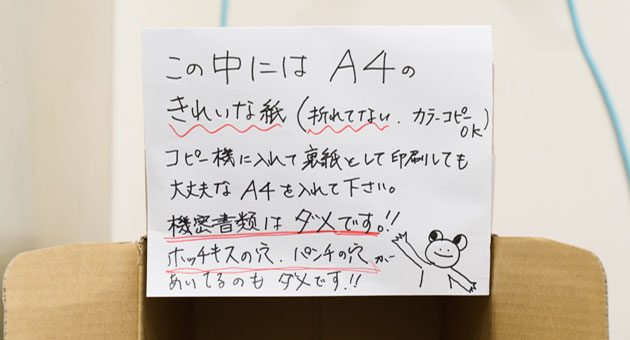 この中にはA4の
きれいな紙(折れてない、カラーコピーOK)
コピー機に入れて裏紙として印刷しても
大丈夫なA4を入れて下さい。
機密書類はダメです。!!
ホッチキスの穴、パンチの穴が
あいてるのもダメです!!